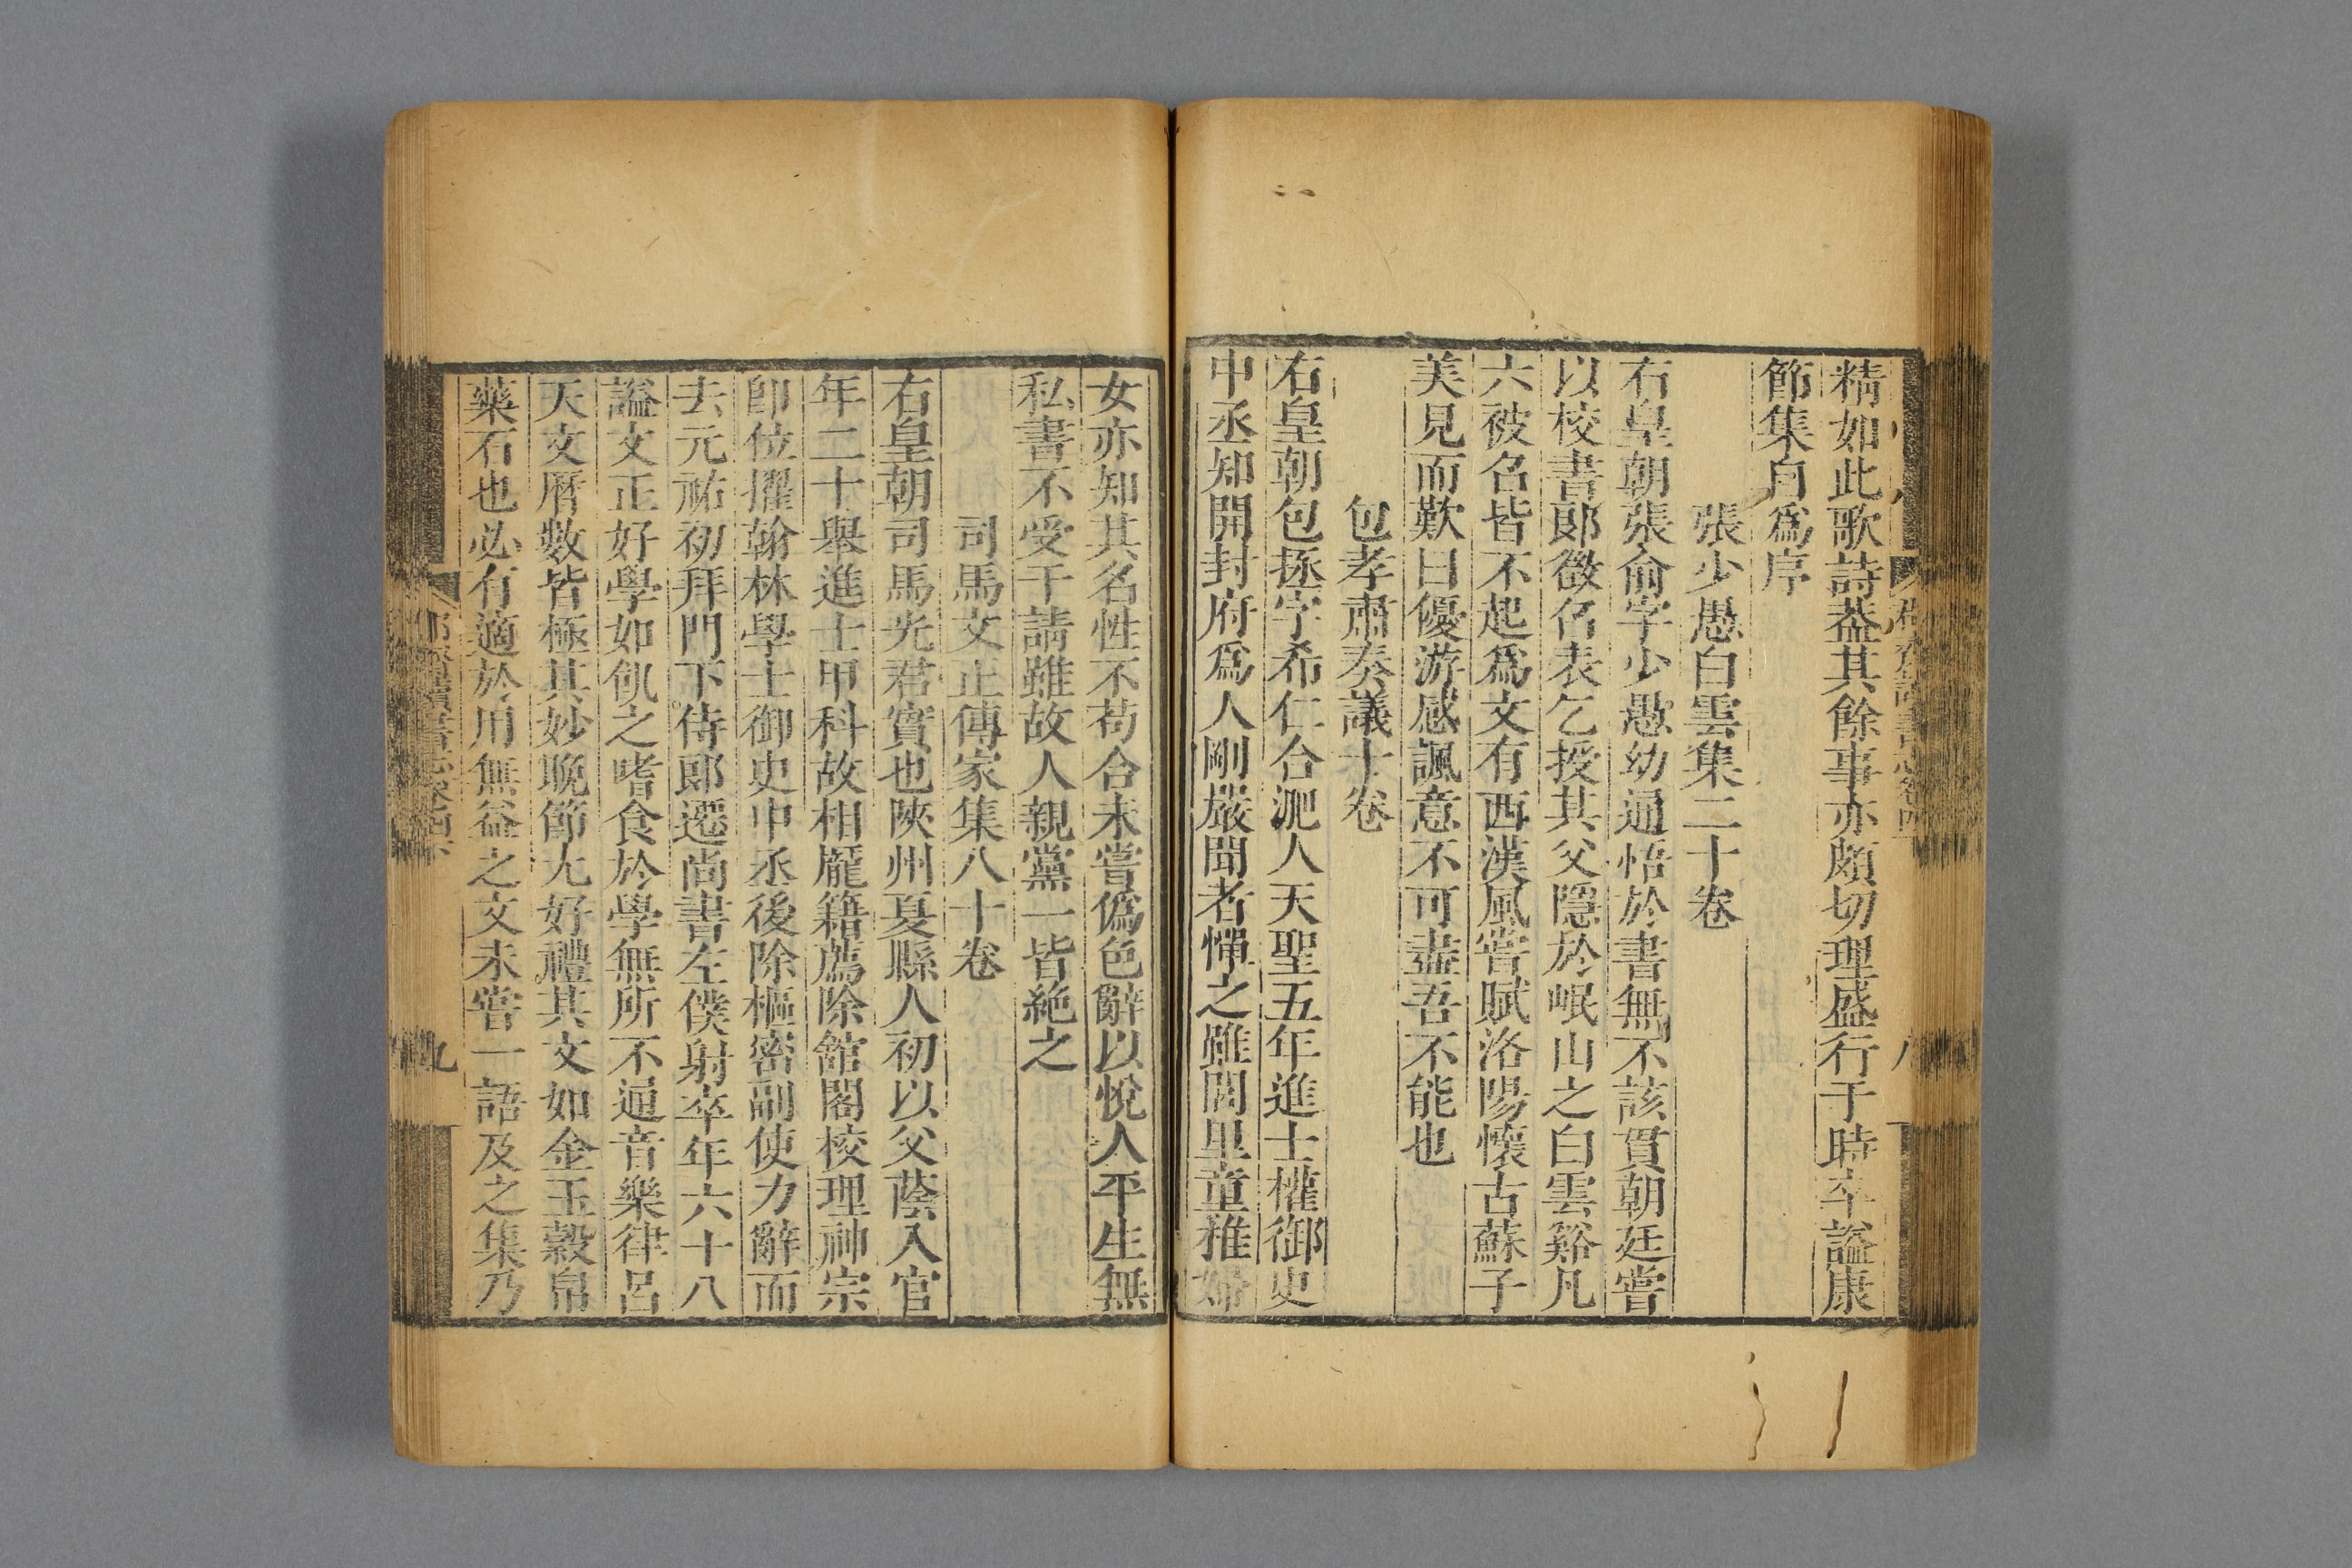 精如此歌詩葢其餘事亦頗切理盛行于時卒謚康
節集自爲序
張少愚白雲集二十卷
右皇朝張俞字少愚幼通悟於書無不該貫朝廷嘗
以校書郞徵俗表乞授其父隱於岷山之白雲谿凡
六被名皆不起爲文有西漢風嘗賦洛陽懷古蘇子
美見而歎曰優游感諷意不可盡吾不能也
包孝肅奏議十卷
右皇朝包拯字希仁合淝人天聖五年進士權御史
中丞知開封府爲人剛嚴聞者憚之雖閭里童稚婦
女亦知其名性不苟合未嘗僞色辭以悅人平生無
私書不受干請雖故人親黨一皆絶之
司馬文正傳家集八十卷
右皇朝司馬光君實也陝州夏縣人初以父蔭入官
年二十舉進士甲科故相龐籍薦除館閣校理神宗
卽位擢翰林學士御史中丞後除樞密副使力辭而
去元祐初拜門下侍郞遷尚書左僕射卒年六十八
謚文正好學如飢之嗜食於學無所不通音樂律呂
天文厤數皆極其妙晚節尢好禮其文如金玉穀帛
藥石也必有適於用無益之文未嘗一語及之集乃
九